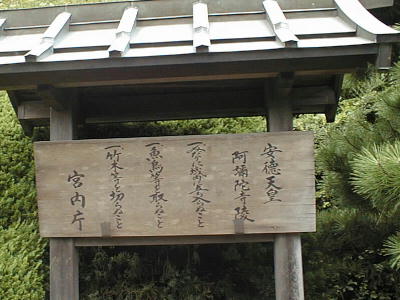 安德天皇
阿彌陀寺陵
一、みだりに域内に立入らぬこと
一、魚鳥等を取らぬこと
一、竹木等を切らぬこと
宮内庁